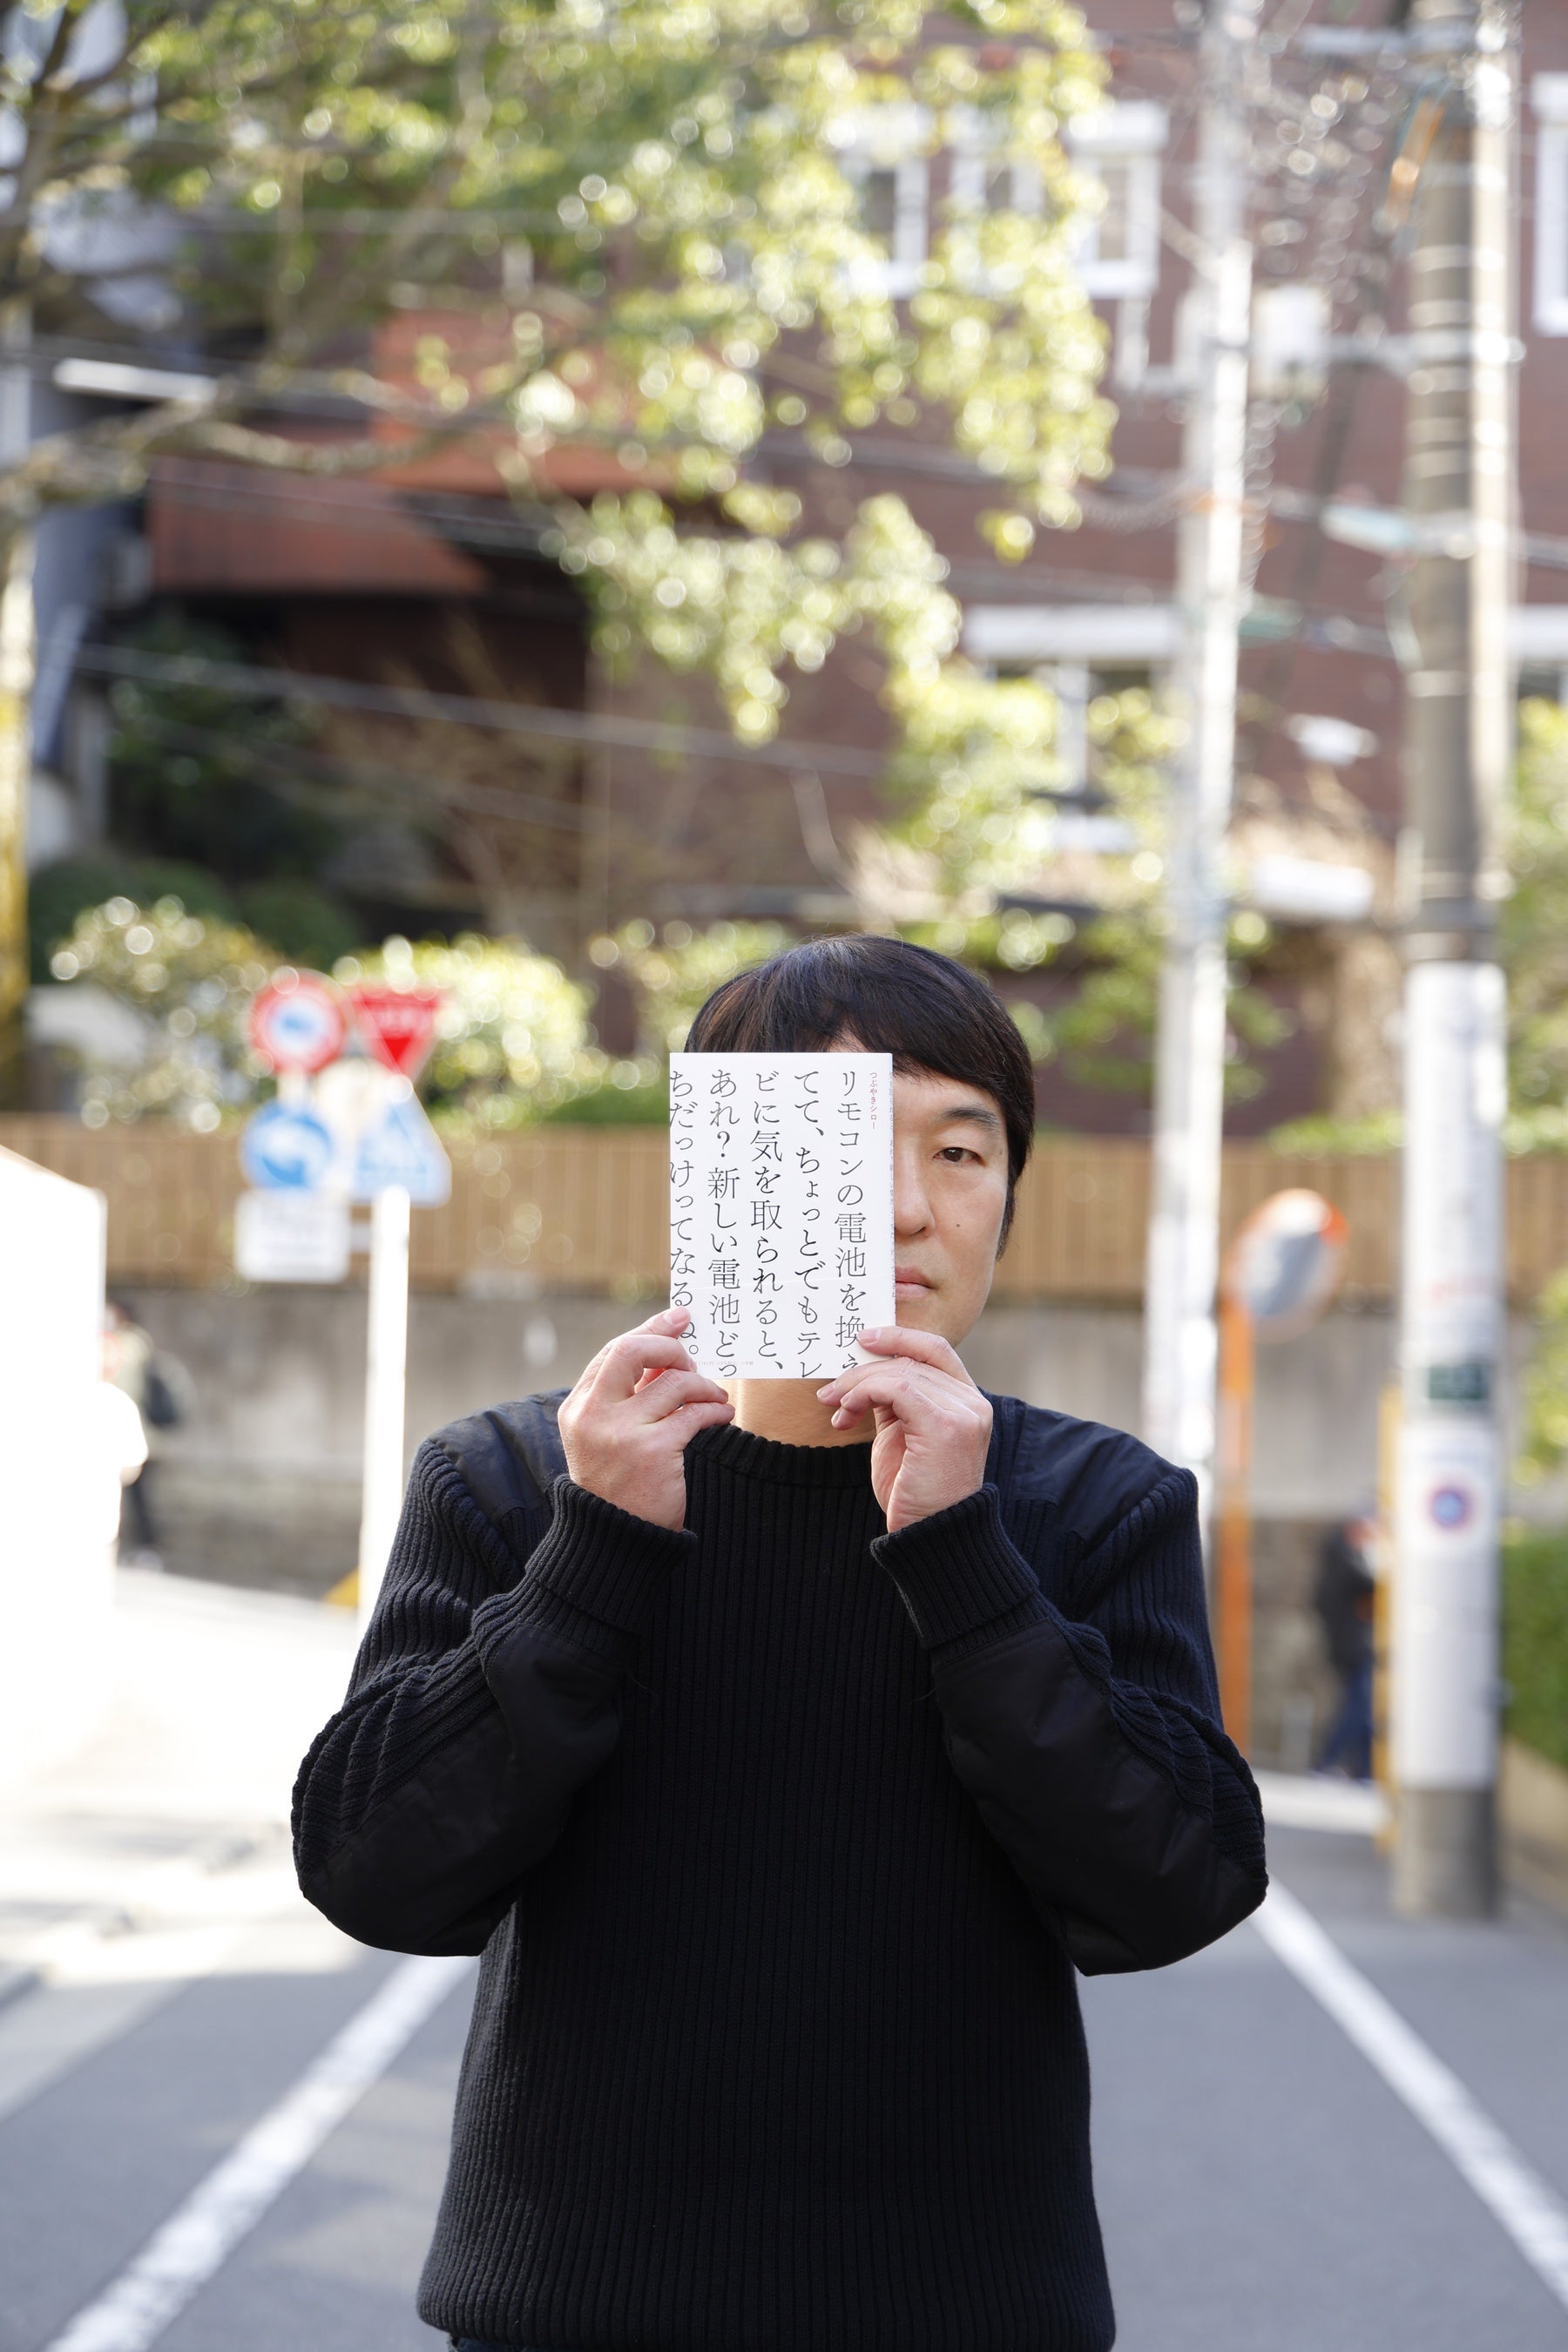 つぶやきシロー
リモコンの電池を換え
てて、ちょっとでもテレ
ビに気を取られると、
あれ？新しい電池どっ
ちだっけってなるね。